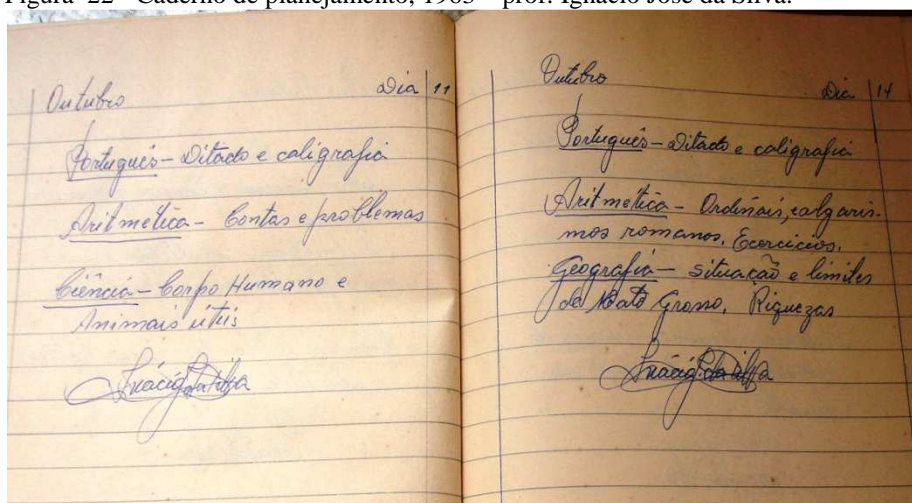 Figura 22 – Caderno de planejamento, 1963 – prof. Ignácio José da Silva.
Outubro Dia 11
Português – Ditado e caligrafia
Aritmética – Contas e problemas
Ciência – Corpo Humano e
Animais utéis
Inácio da Silva
Outubro Dia 14
Português – Ditado e caligrafia
Aritmética – Ordinais, e algaris-
mos romanos. Ecercicios.
Geografia – situação e limites
de Mato Grosso. Riquezas
Inácio da Silva